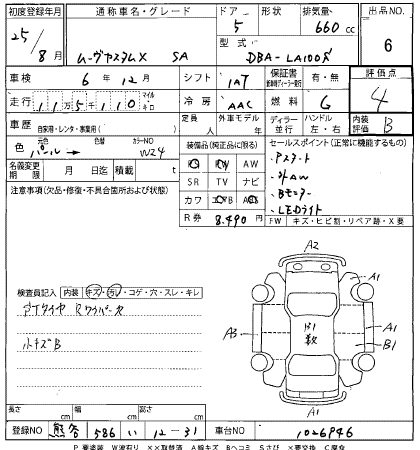 初度登録年月 通称車名・グレード ドアー 形状 排気量 出品No
25/8月 ムーヴカスタムX SA 5 660cc 6
型式 DBA-LA100S
車検 6年12月 シフト IAT 保証書 有・無 評価点
走行 115,110 マイル キロ 冷房 AAC 燃料 G 4
車歴 自家用・レンタ・事業用( ) 定員 人 外車モデル 年 ディーラー 並行 ハンドル 左・右 内装評価 B
色 元色 パール → 色替 カラーNO W24 装備品(純正品に限る) セールスポイント(正常に機能するもの)
名義変更期限 月 日迄 積載 t
PS PW AW
SR TV ナビ
カワ エアB ABS
R券 8,490円
Pスタート
Bモニター
LEDライト
FW キズ・ヒビ割・リペア跡・X要
注意事項(欠品・修復・不具合箇所および状態)
検査員記入 内装 キズ・汚レ・コゲ・穴・スレ・キレ
小キズB
A2
A1
A3
B1
A1
B1
A1
長さ cm 幅 cm 高さ cm
登録NO 熊谷 586 い 12-31 車台NO 1026946
P要塗装 W波有り XX取替済 A線キズ Bヘコミ Sさび X要交換 C腐食